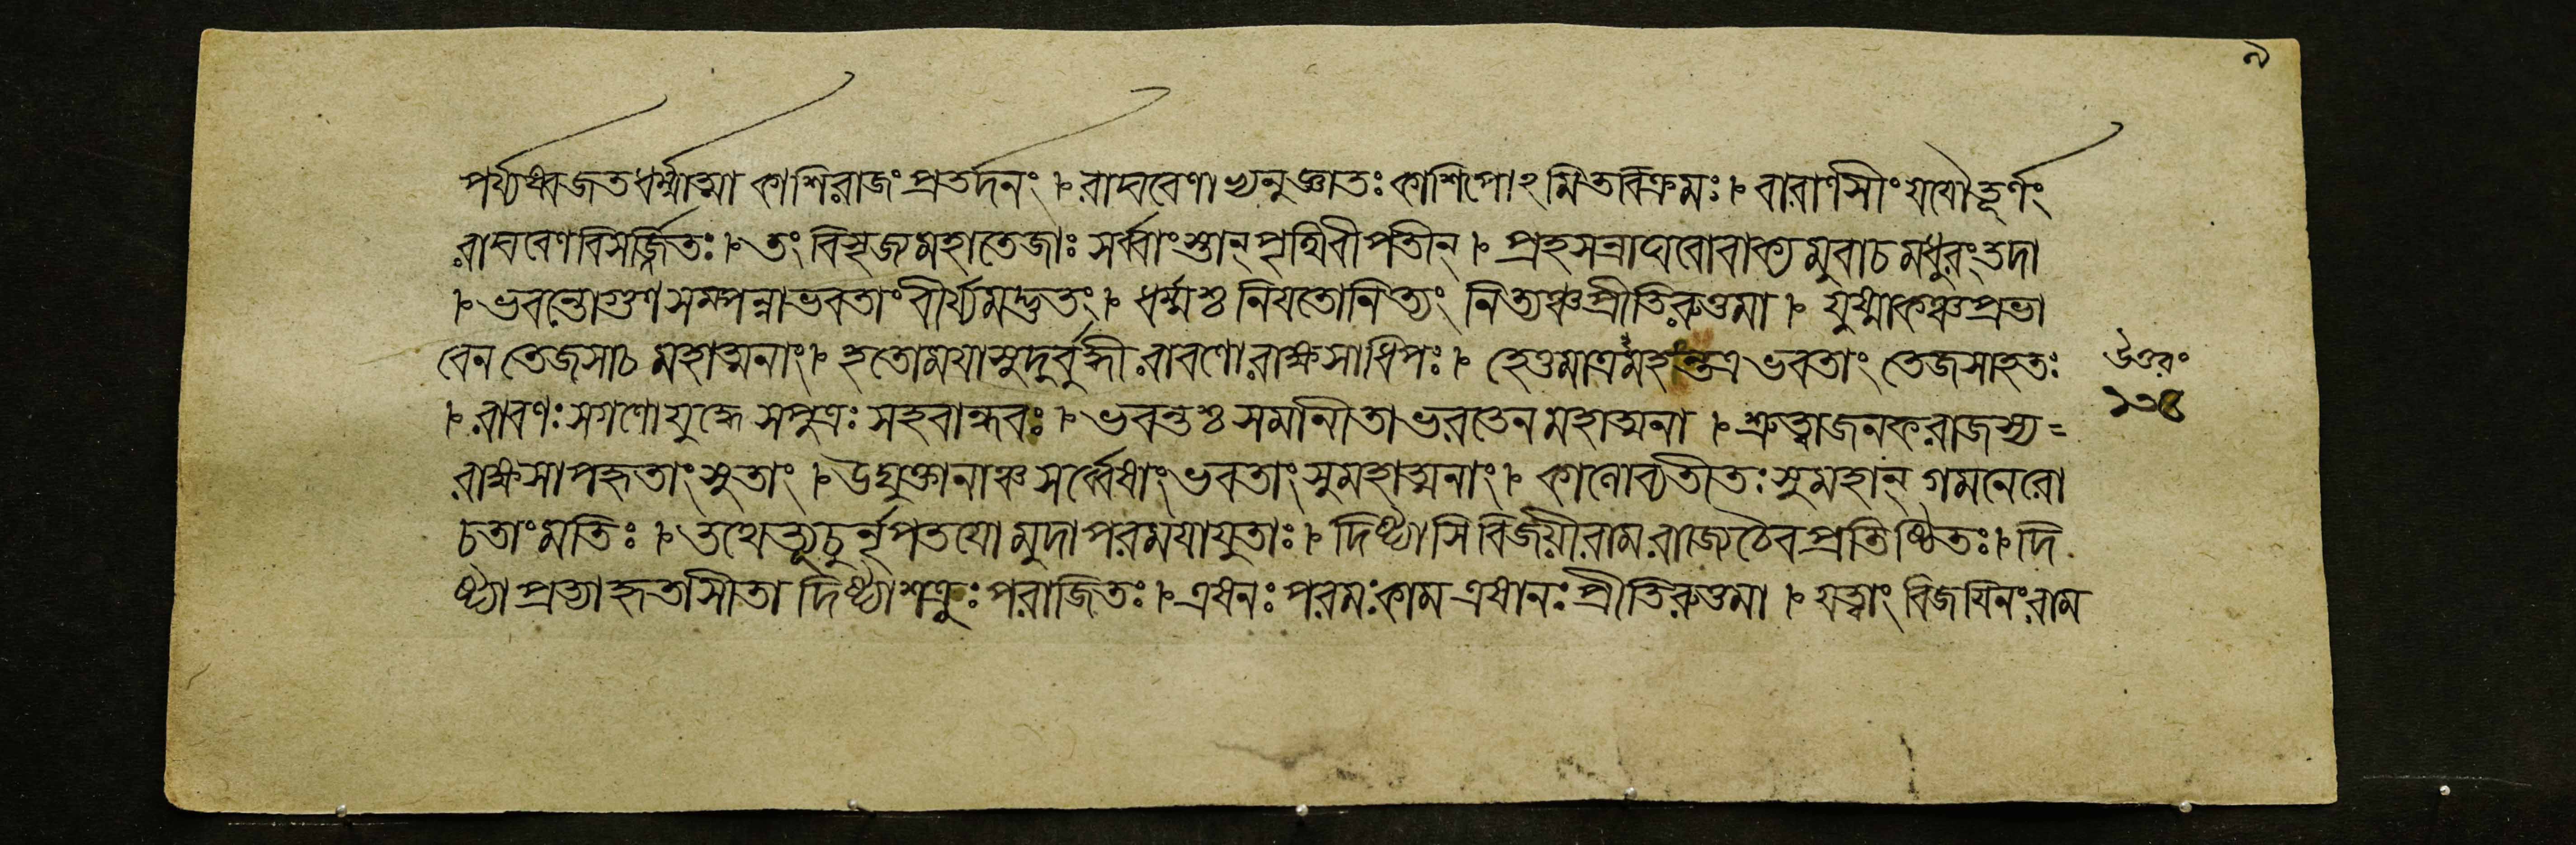 ৯
পর্য্যষ্বজত ধর্ম্মাত্মা কাশিরাজং প্রতর্দনং । রাঘবেণাভ্যনুজ্ঞাতঃ কাশিপোঽমিতবিক্রমঃ । বারাণসীং যযৌ তূর্ণং
রাঘবেণ বিসর্জ্জিতঃ । তং বিসৃজ্য মহাতেজাঃ সর্ব্বাংস্তান্ পৃথিবীপতীন্ । প্রহসন্রাঘবো বাক্যমুবাচ মধুরং তদা
। ভবন্তো গুণসম্পন্না ভবতাং বীর্য্যমদ্ভুতং । ধর্ম্মশ্চ নিয়তো নিত্যং নিত্যঞ্চ প্রীতিরুত্তমা । যুষ্মাকঞ্চ প্রভা
বেন তেজসা চ মহাত্মনাং । হতো ময়া সুদুর্বুদ্ধী রাবণো রাক্ষসাধিপঃ । হেতুমাত্রমহন্তত্র ভবতাং তেজসা হতঃ
। রাবণঃ সগণো যুদ্ধে সপুত্রঃ সহবান্ধবঃ । ভবন্তশ্চ সমানীতা ভরতেন মহাত্মনা । শ্রুত্বা জনকরাজস্য =
রাক্ষসাপহৃতাং সুতাং । উদ্যুক্তানাঞ্চ সর্ব্বেষাং ভবতাং সুমহাত্মনাং । কালো ব্যতীতঃ সুমহান্ গমনে রো
চতাং মতিঃ । তথেত্যূচুর্নৃপতয়ো মুদা পরময়া যুতাঃ । দিষ্ট্যাসি বিজয়ী রাম রাজ্যে চৈব প্রতিষ্ঠিতঃ । দি
ষ্ট্যা প্রত্যাহৃতা সীতা দিষ্ট্যা শত্রুঃ পরাজিতঃ । এষ নঃ পরমঃ কাম এষা নঃ প্রীতিরুত্তমা । যত্ত্বাং বিজয়িনং রাম
উত্তরং
১৩৫